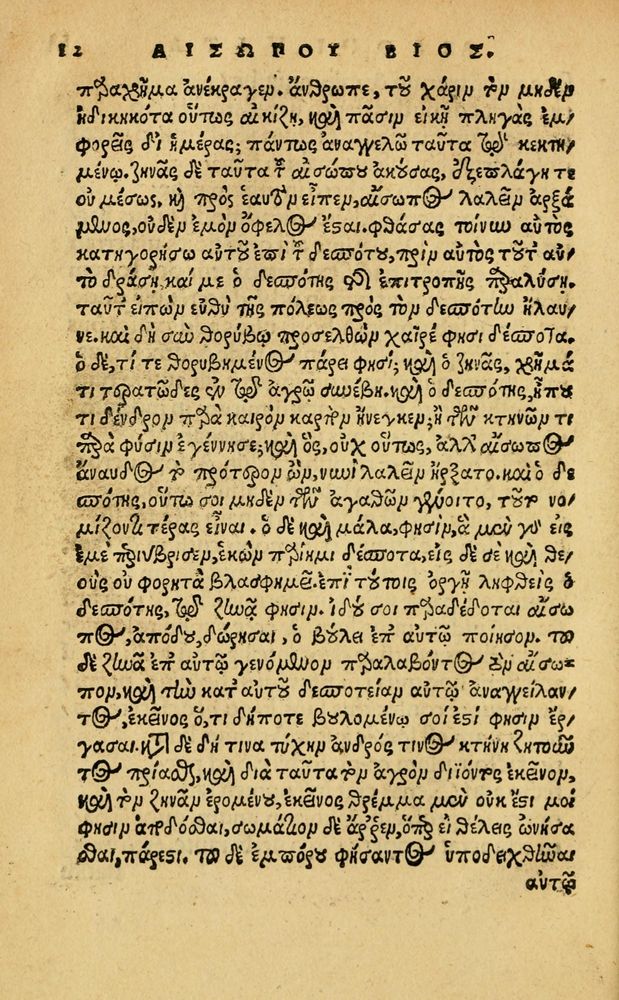 12 ΑΙΣΩΠΟΥ ΒΙΟΣ.
πρᾶχῆμα ἀνέκραγεν. ἄνθρωπε, τοῦ χάριν τὸν μηδὲν
ἠδικηκότα οὕτως αἰκίζη, καὶ πᾶσιν εἰκῆ πληγὰς ἐμ/
φορεῖς δι ἡμέρας; πάντως ἀναγγελῶ ταῦτα τῷ κεκτη/
μένῳ. ζηνᾶς δὲ ταῦτα τ αἰσώπου ἀκούσας, ἐξεπλάγη τε
οὐ μέσως, κὴ πρὸς ἑαυτὸν εἶπεν, αἴσωπος λαλεῖν ἀρξά
μενος, οὐδὲν ἐμὸν ὄφελος ἔσαι. φθάσας τοίνυν αὐτὸς
κατηγορήσω αὐτοῦ ἐπὶ τ δεσπότου, πρὶν αὐτὸς τοῦτ αὐ/
τὸ δράση, καί με ὁ δεσπότης τῆς ἐπιτροπῆς παραλύση.
ταῦτ εἰπὼν εὐθὺ τῆς πόλεως πρὸς τὸν δεσπότην ἤλαυ/
νε. καὶ δὴ σὺν θορύβῳ προσελθὼν χαῖρέ φησι δέσποτα.
ὁ δὲ, τί τεθορυβημένος πάρει φησί; καὶ ὁ ζηνᾶς, χῆμά
τι τερατῶδες ἐν τῷ ἀγρῷ συνέβη. καὶ ὁ δεσπότης, ἤπου
τι δένδρον παρὰ καιρὸν καρπὸν ἤνεγκεν; ἢ τῶν κτηνῶν τι
παρὰ φύσιν ἐγέννησε; καὶ ὃς, οὐχ οὕτως, ἀλλ αἴσωπος
ἄναυδος τὸ πρότερον ὢν, νυνὶ λαλεῖν ἤρξατο. καὶ ὁ δε
σπότης, οὕτω σοι μηδὲν τῶν ἀγαθῶν γένοιτο, τοῦτο νο/
μίζοντι τέρας εἶναι. ὁ δὲ καὶ μάλα, φησὶν, ἃ μὲν γὰρ εἰς
ἐμὲ περιύβρισεν, ἑκὼν παρίημι δέσποτα, εἰς δὲ σὲ καὶ θε/
οὺς οὐ φορητὰ βλασφημεῖ. ἐπὶ τούτοις ὀργῇ ληφθεὶς ὁ
δεσπότης, τῷ ζηνᾷ φησιν. ἰδού σοι παραδέδοται αἴσω
πος, ἀπόδου, δώρησαι, ὃ βούλει ἐπ αὐτῷ ποίησον. τοῦ
δὲ ζηνᾶ ἐπ αὐτῷ γενόμενον παραλαβόντος τὸν αἴσω=
πον, καὶ τὴν κατ αὐτοῦ δεσποτείαν αὐτῷ ἀναγγείλαν/
τος, ἐκεῖνος ὅ, τι δήποτε βουλομένῳ σοί ἐσί φησιν ἔρ/
γασαι. κατὰ δὲ δή τινα τύχην ἀνδρός τινος κτήνη ζητοῦν
τος πρίασθαι, καὶ διὰ ταῦτα τὸν ἀγρὸν διϊόντος ἐκεῖνον,
καὶ τὸν ζηνᾶν ἐρομένου, ἐκεῖνος θρέμμα μὲν οὐκ ἔσι μοι
φησὶν ἀποδόσθαι, σωμάτιον δὲ ἄρρεν, ὅπερ εἰ θέλεις ὠνήσα
σθαι, πάρεσι. τοῦ δὲ ἐμπόρου φήσαντος ὑποδειχθῆναι
αὐτῷ